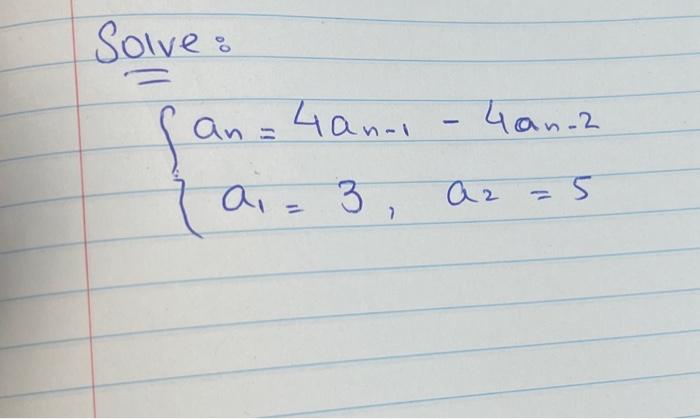 Solve:
aₙ = 4aₙ₋₁ - 4aₙ₋₂
a₁ = 3, a₂ = 5